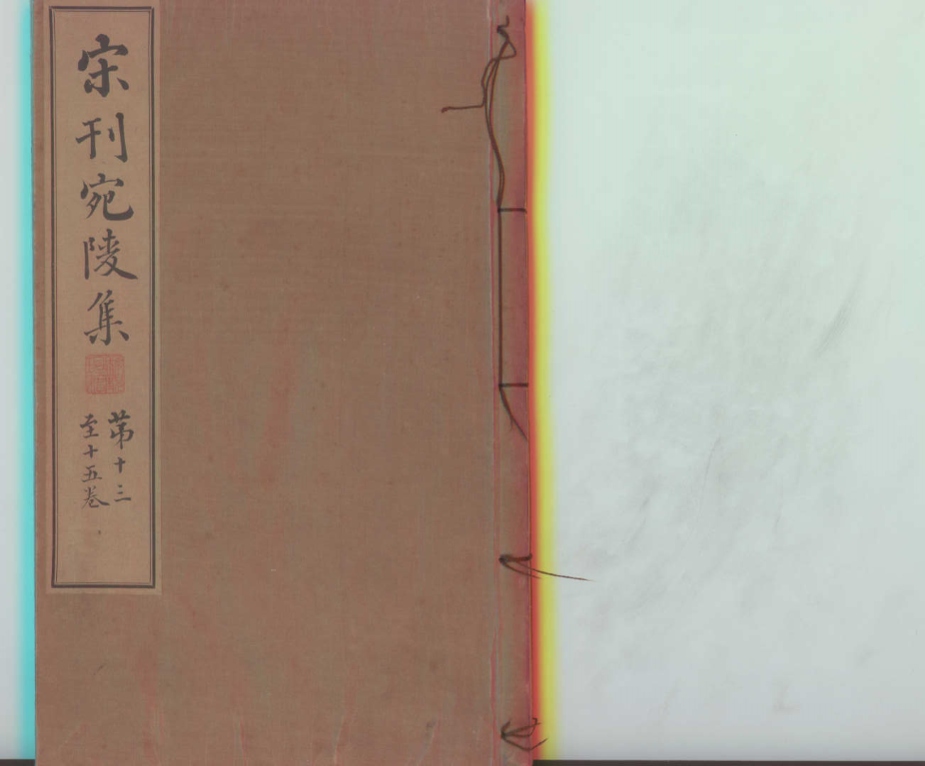 宋刊宛陵集
苐十三
至十五卷